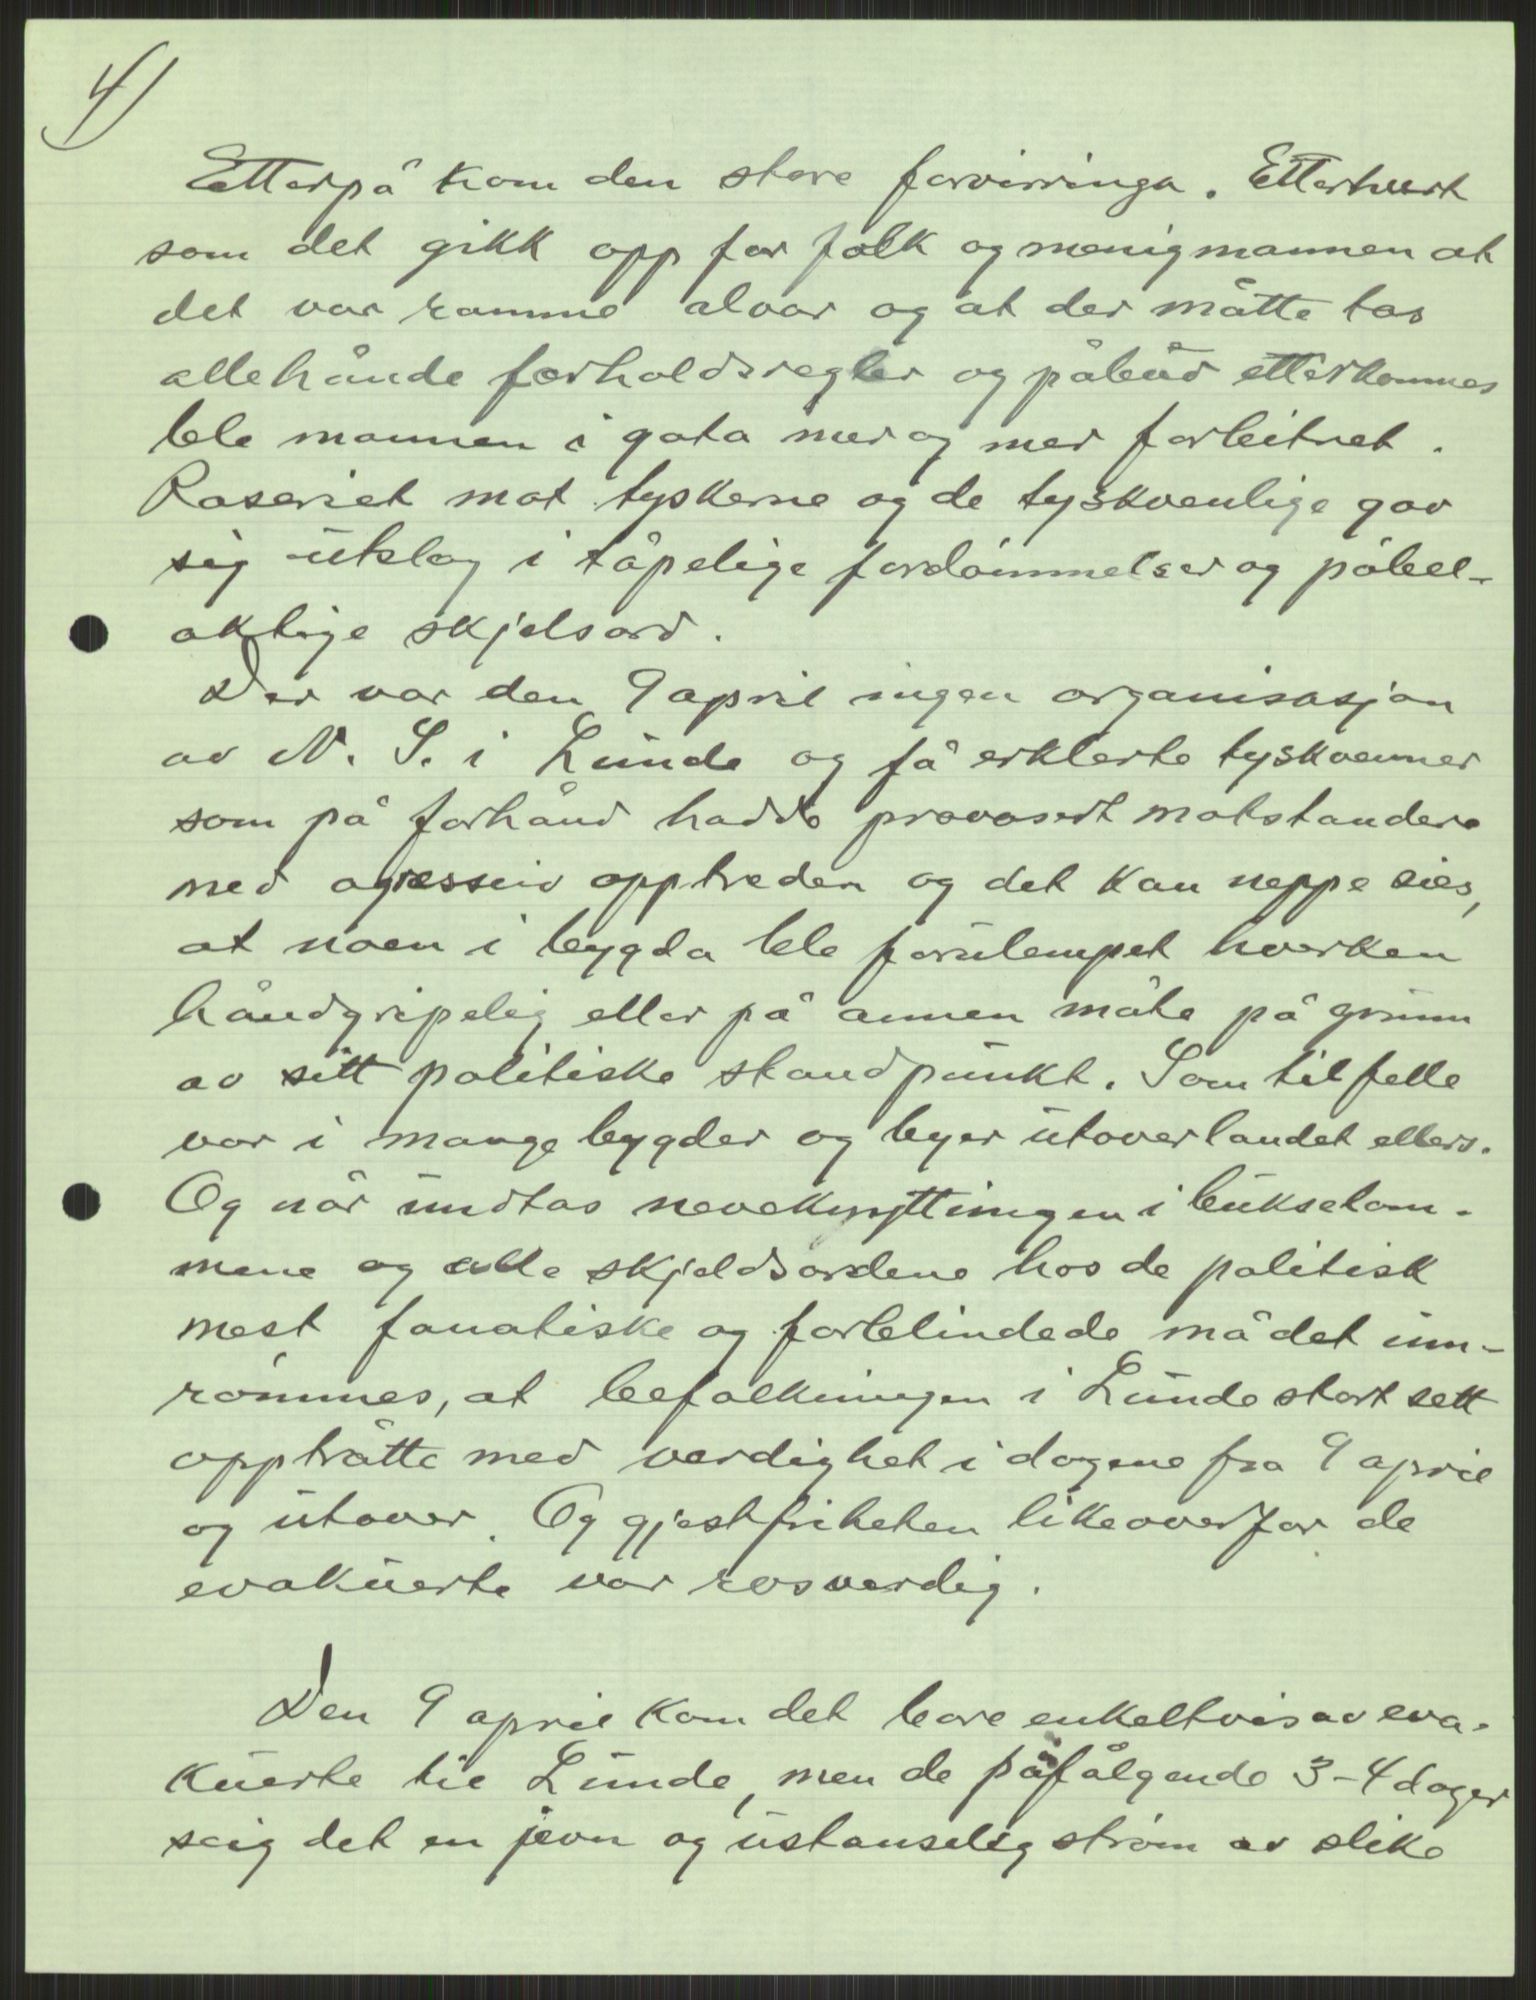 4)
Etterpå kom den store forvirringa. Etterhvert
som det gikk opp for folk og menigmannen at
det var ramme alvor og at der måtte tas
allehånde forholdsregler og påbud etterkommes
ble mannen i gata mer og mer forbitret.
Raseriet mot tyskerne og de tyskvenlige gav
sig utslag i tåpelige fordømmelser og pøbel-
aktige skjelsord.
Der var den 9 april ingen organisasjon
av N. S. i Lunde og få erklerte tyskvenner
som på forhånd hadde provosert motstandere
med agressiv opptreden og det kan neppe sies,
at noen i bygda ble forulempet hverken
håndgripelig eller på annen måte på grunn
av sitt politiske standpunkt. Som tilfelle
var i mange bygder og byer utover landet ellers.
Og når undtas neveknyttingen i bukselom-
mene og alle skjeldsordene hos de politisk
mest fanatiske og forblindede må det inn-
rømmes, at befolkningen i Lunde stort sett
opptråtte med verdighet i dagene fra 9 april
og utover. Og gjestfriheten likeoverfor de
evakuerte var rosverdig.
Den 9 april kom det bare enkeltvis av eva-
kuerte til Lunde, men de påfølgende 3-4 dager
seig det en jevn og ustanselig strøm av slike